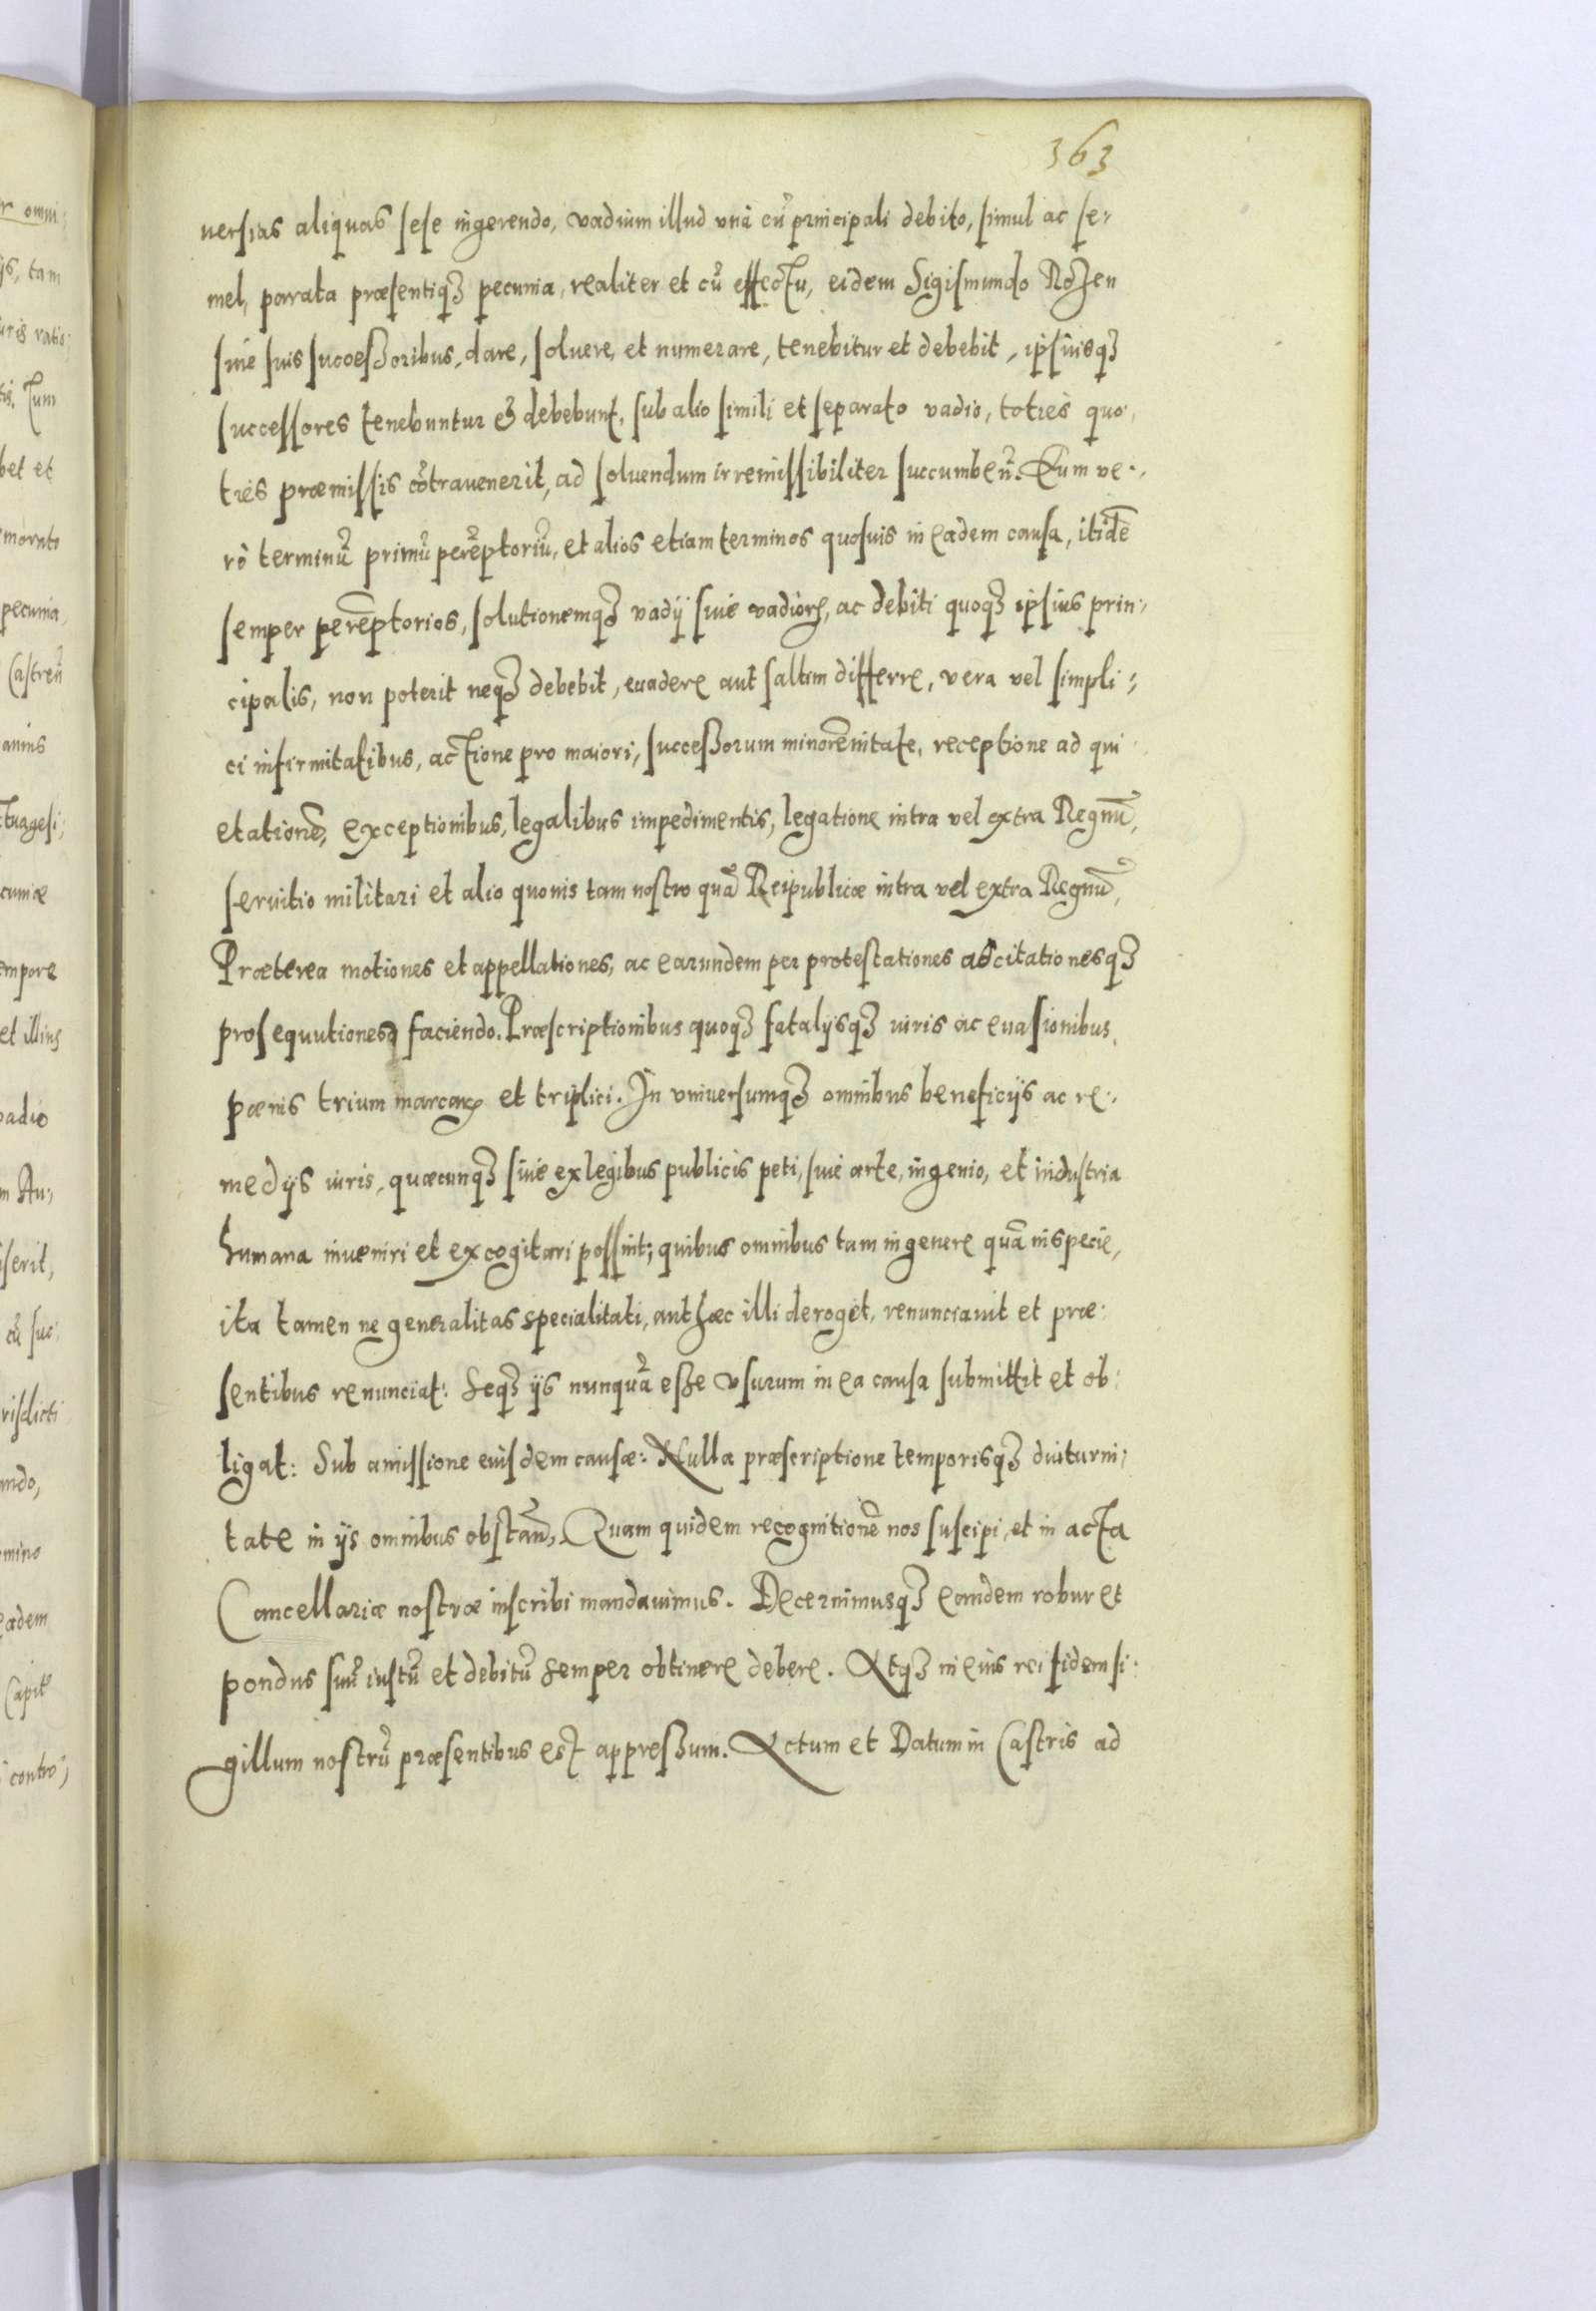 363
uersias aliquas sese ingerendo, vadium illud vnà cũ principali debito, simul ac se-
mel, parata præsentiqꝫ pecunia, realiter et cũ effectu, eidem Sigismundo Rozen
siue suis successoribus, dare, soluere, et numerare, tenebitur et debebit, ipsiusqꝫ
successores tenebuntur & debebunt, sub alio simili et separato vadio, toties quo-
ties præmissis cõtrauenerit, ad soluendum irremissibiliter succumbeñ. Eum ve-
rò terminũ primũ perẽptoriũ, et alios etiam terminos quosuis in eadem causa, itidẽ
semper perẽptorios, solutionemqꝫ vadij siue vadiorꝝ, ac debiti quoqꝫ ipsius prin-
cipalis, non poterit neqꝫ debebit, euadere aut saltim differre, vera vel simpli-
ci infirmitatibus, actione pro maiori, successorum minorẽnitate, receptione ad qui
etationẽ, exceptionibus, legalibus impedimentis, legatione intra vel extra Regnũ,
seruitio militari et alio quouis tam nostro quã Reipublicæ intra vel extra Regnũ,
Præterea motiones et appellationes, ac earundem per protestationes adcitationesqꝫ
prosequutiones faciendo. Præscriptionibus quoqꝫ fatalijsqꝫ iuris ac euasionibus,
pænis trium marcarꝝ et triplici. In vniuersumqꝫ omnibus beneficijs ac re-
medijs iuris, quæcunqꝫ siue ex legibus publicis peti, siue arte, ingenio, et industria
humana inueniri et excogitari possint; quibus omnibus tam in genere quã in specie,
ita tamen ne generalitas specialitati, aut hæc illi deroget, renunciauit et præ-
sentibus renunciat: seqꝫ ijs nunquã esse vsurum in ea causa submittit et ob-
ligat: Sub amissione eiusdem causæ: Nulla præscriptione temporisqꝫ diuturni-
tate in ijs omnibus obstañ, Quam quidem recognitionẽ nos suscipi, et in acta
Cancellariæ nostræ inscribi mandauimus. Decernimusqꝫ eandem robur et
pondus suũ iustũ et debitũ semper obtinere debere. Atqꝫ in eius rei fidem si-
gillum nostrũ præsentibus est appressum. Actum et Datum in Castris ad